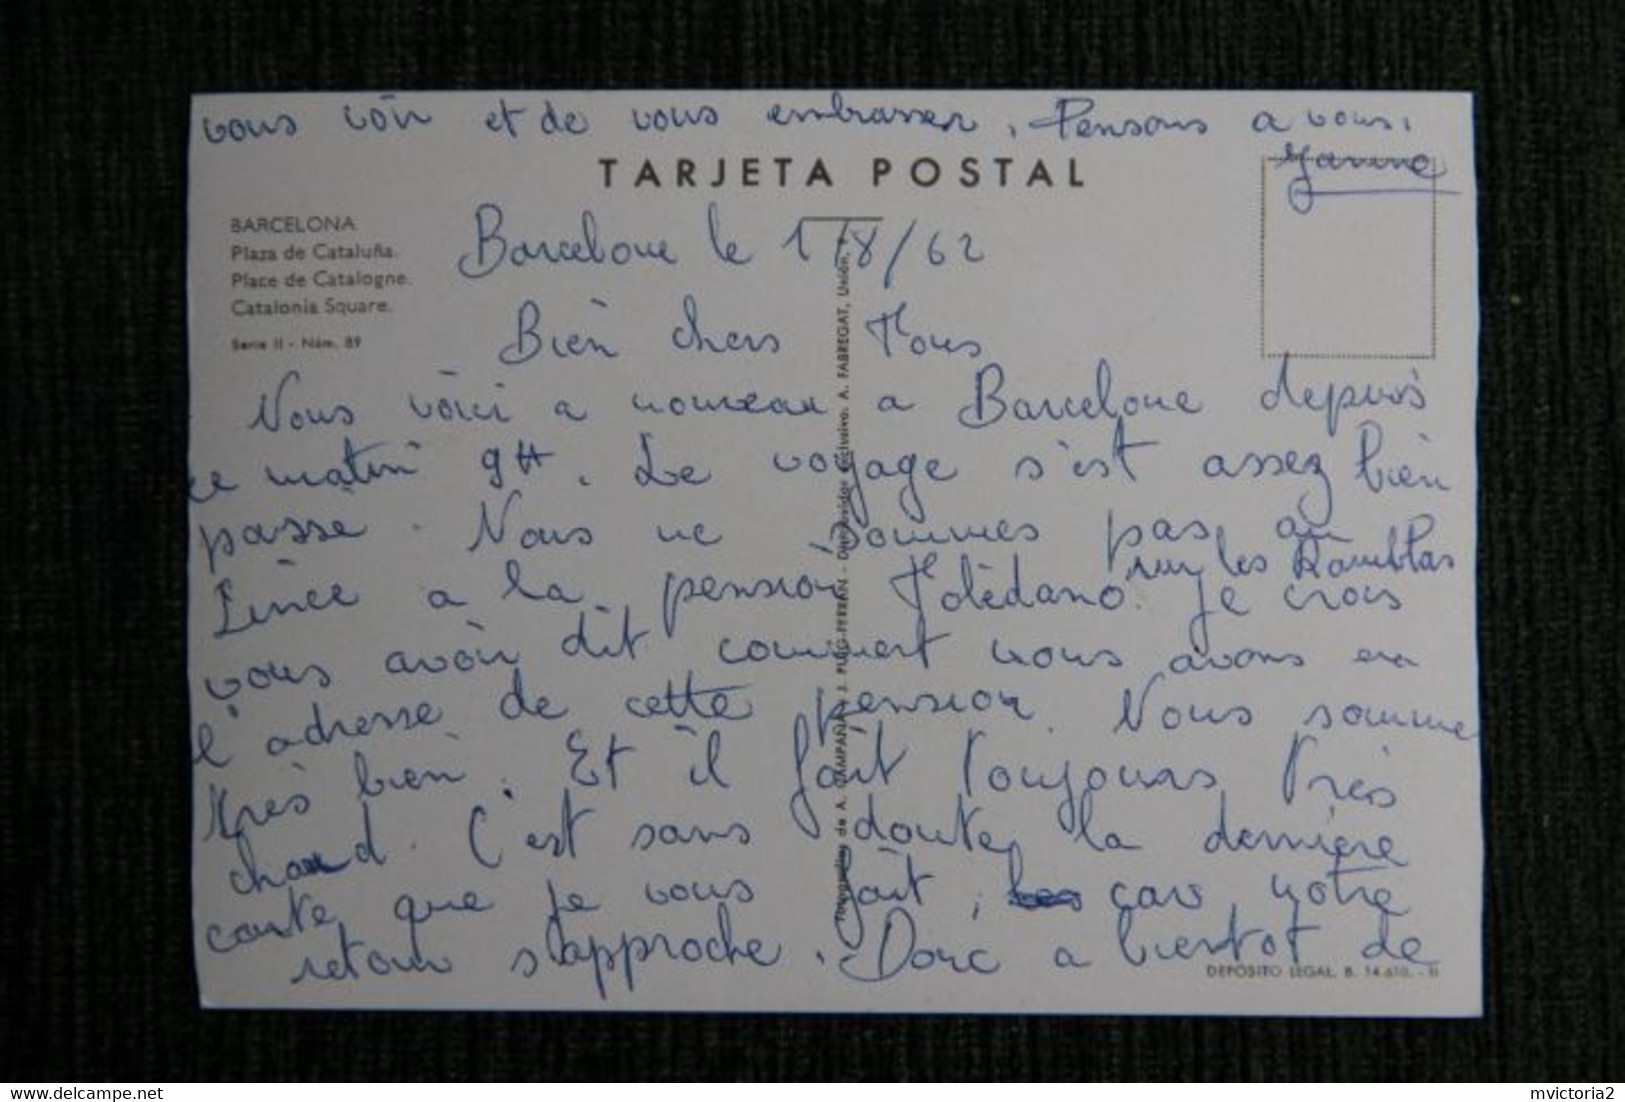 vous voir et de vous embrasser. Pensons a vous.
Janine
TARJETA POSTAL
BARCELONA
Plaza de Cataluña.
Place de Catalogne.
Catalonia Square.
Serie II - Núm. 89
Barcelone le 1/8/62
Bien chers Tous
Nous voici a nouveau a Barcelone depuis
ce matin 9H. Le voyage s'est assez bien
passé. Nous ne sommes pas au
Lincé a la pension Tolédano. Je crois
sur les Ramblas
vous avoir dit comment nous avons eu
l'adresse de cette pension. Nous somme
très bien. Et il fait toujours très
chaud. C'est sans doute la dernière
carte que je vous fait, car notre
retour s'approche. Donc a bientot de
de A. CAMPAÑA y J. PUIG-FERRAN - Distribuidor exclusivo: A. FABREGAT, Unión,
DEPÓSITO LEGAL. B. 14.610. - II
mvictoria2